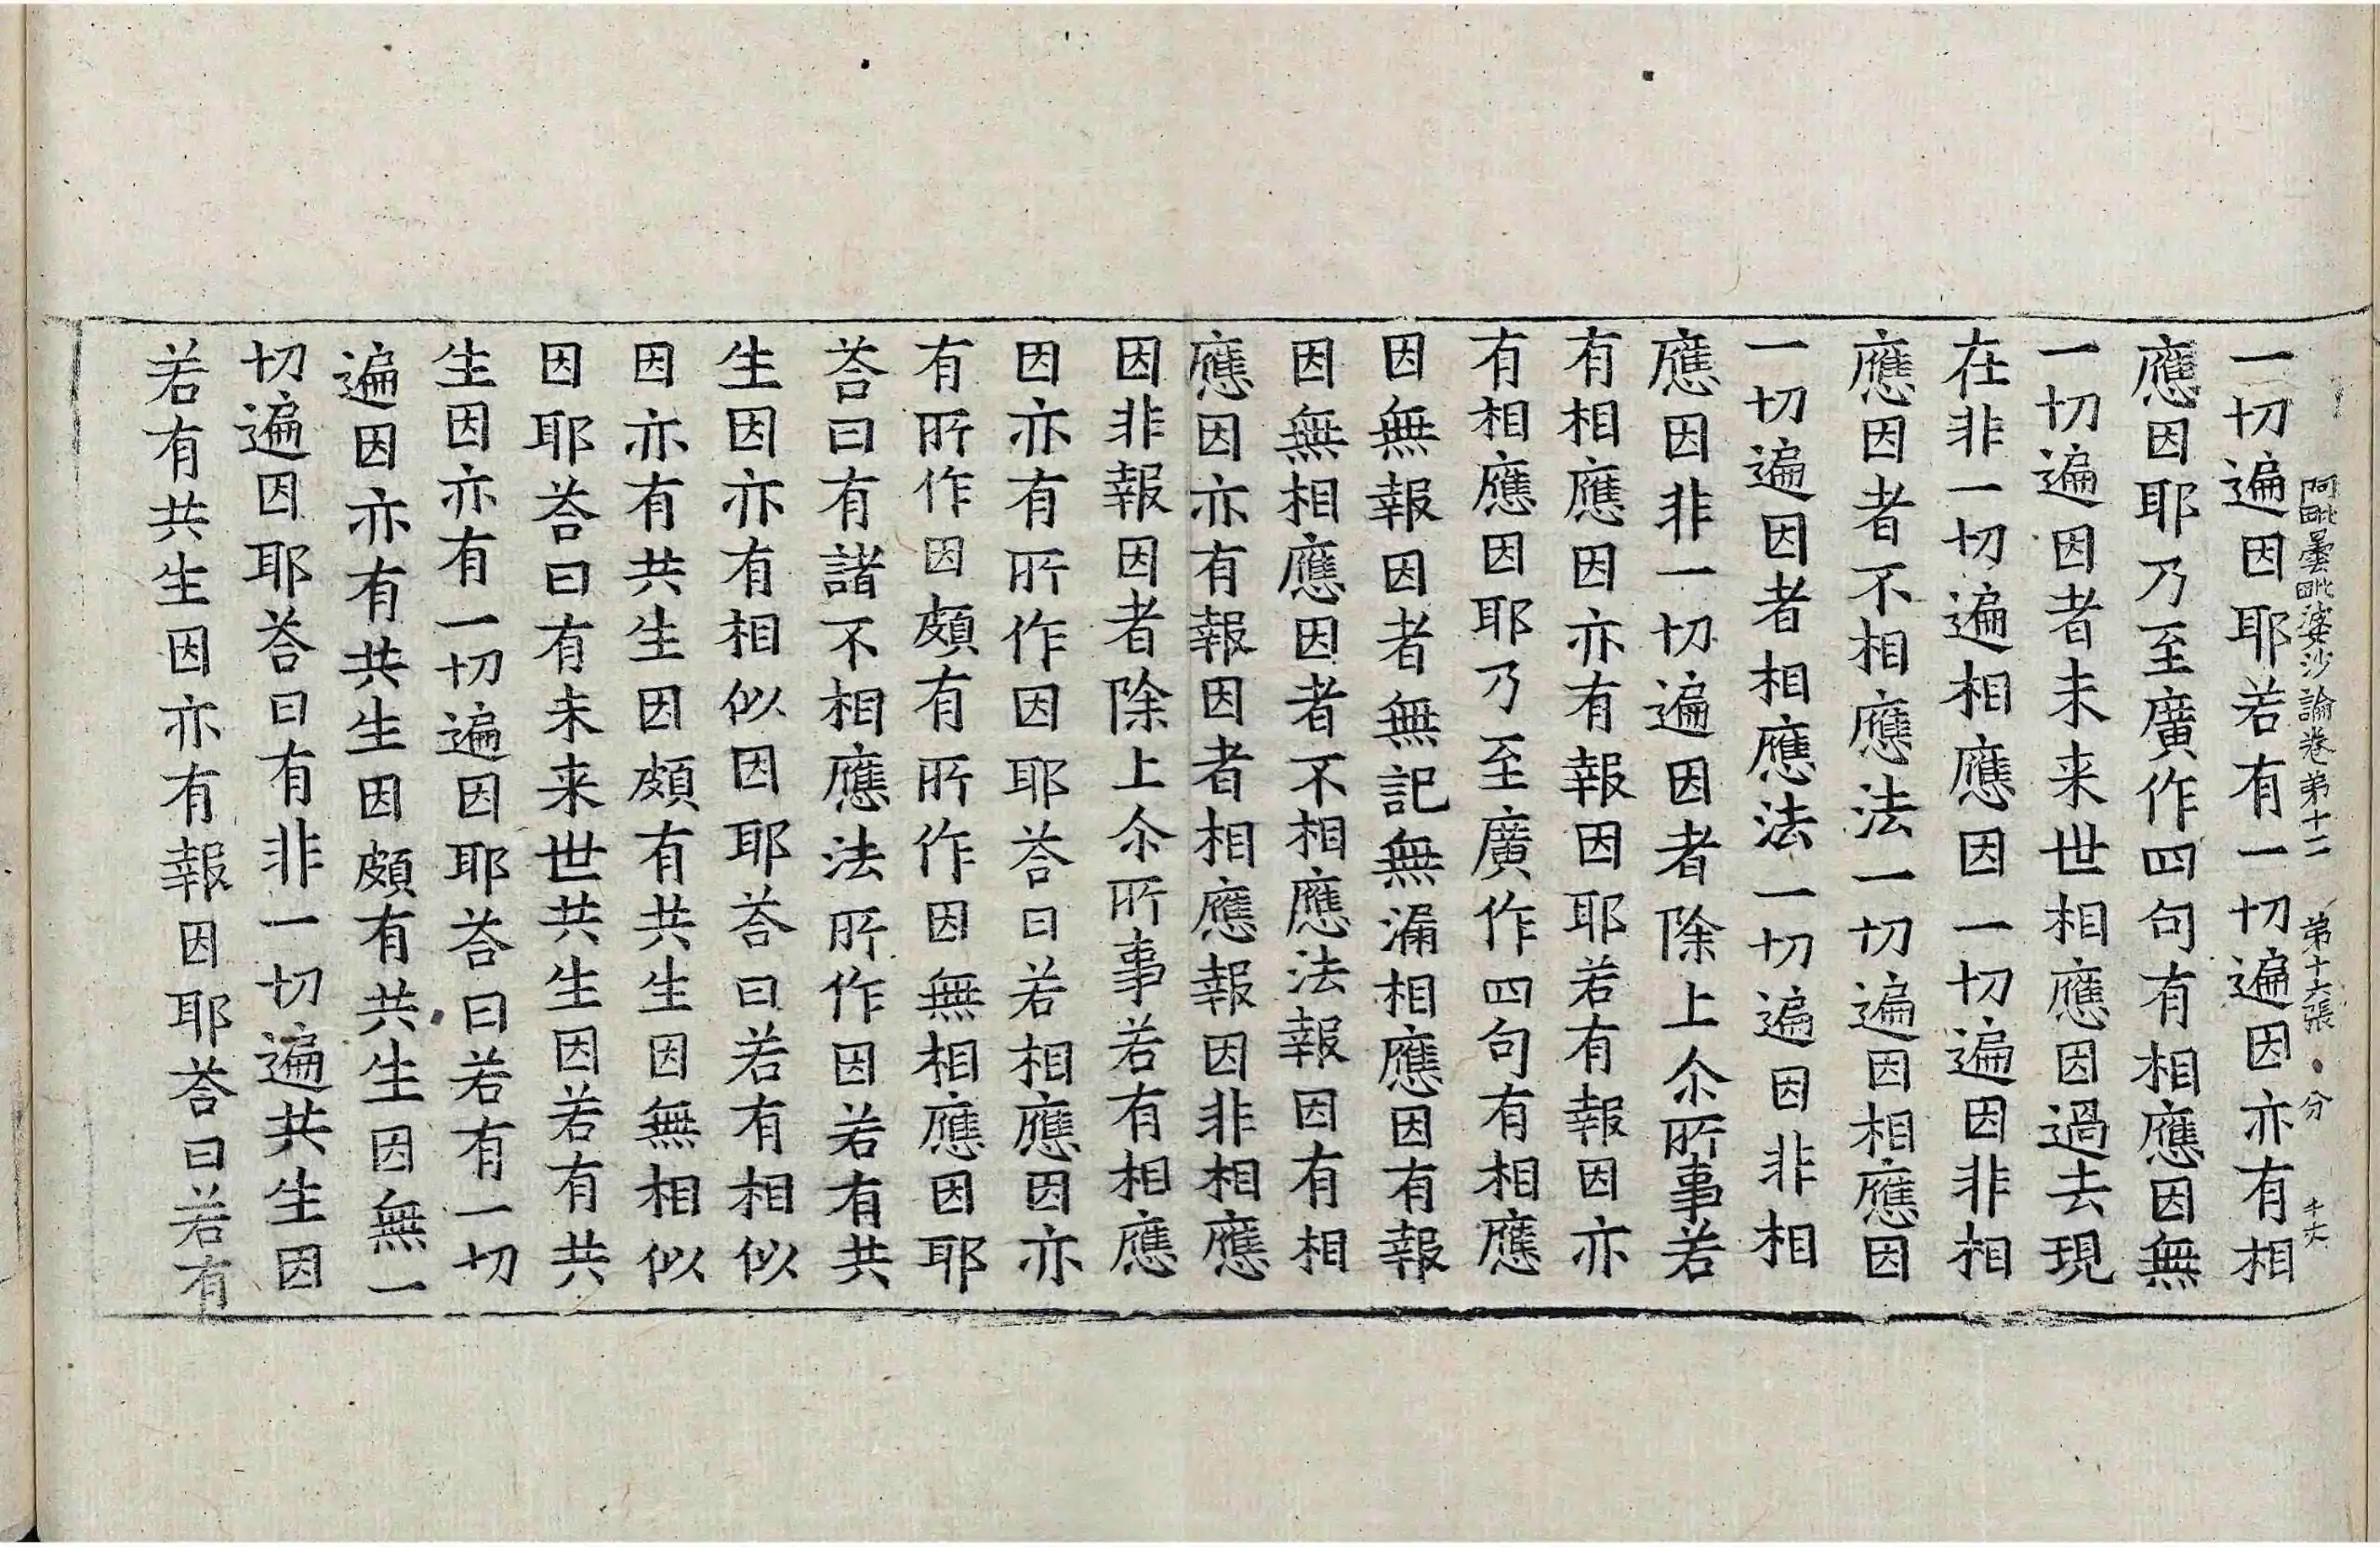 阿毗曇毗婆沙論卷第十二 第十六張 分 
一切遍因耶若有一切遍因亦有相
應因耶乃至廣作四句有相應因無
一切遍因者未来世相應因過去現
在非一切遍相應因一切遍因非相
應因者不相應法一切遍因相應因
一切遍因者相應法一切遍因非相
應因非一切遍因者除上尒所事若
有相應因亦有報因耶若有報因亦
有相應因耶乃至廣作四句有相應
因無報因者無記無漏相應因有報
因無相應因者不相應法報因有相
應因亦有報因者相應報因非相應
因非報因者除上尒所事若有相應
因亦有所作因耶荅曰若相應因亦
有所作因頗有所作因無相應因耶
荅曰有諸不相應法所作因若有共
生因亦有相似因耶荅曰若有相似
因亦有共生因頗有共生因無相似
因耶荅曰有未来世共生因若有共
生因亦有一切遍因耶荅曰若有一切
遍因亦有共生因頗有共生因無一
切遍因耶荅曰有非一切遍共生因
若有共生因亦有報因耶荅曰若有